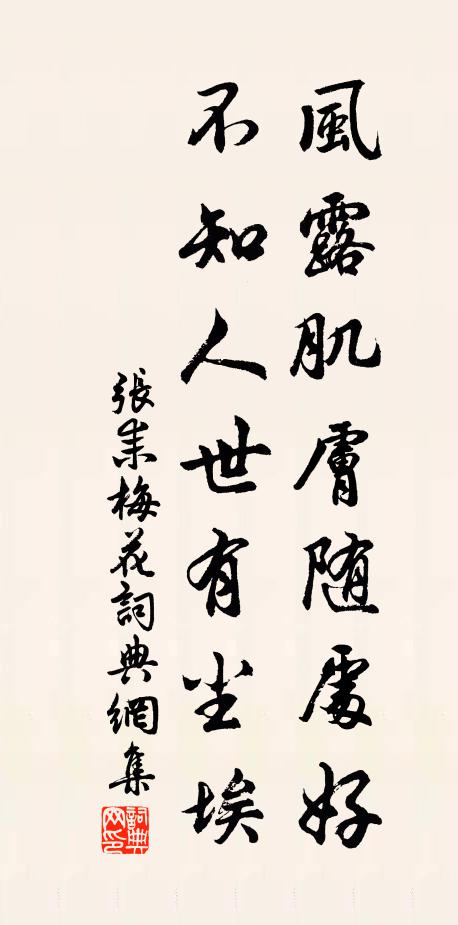 風露肌膚随處好
不知人世有尘埃
張耒梅花詞典網集
詞典网印